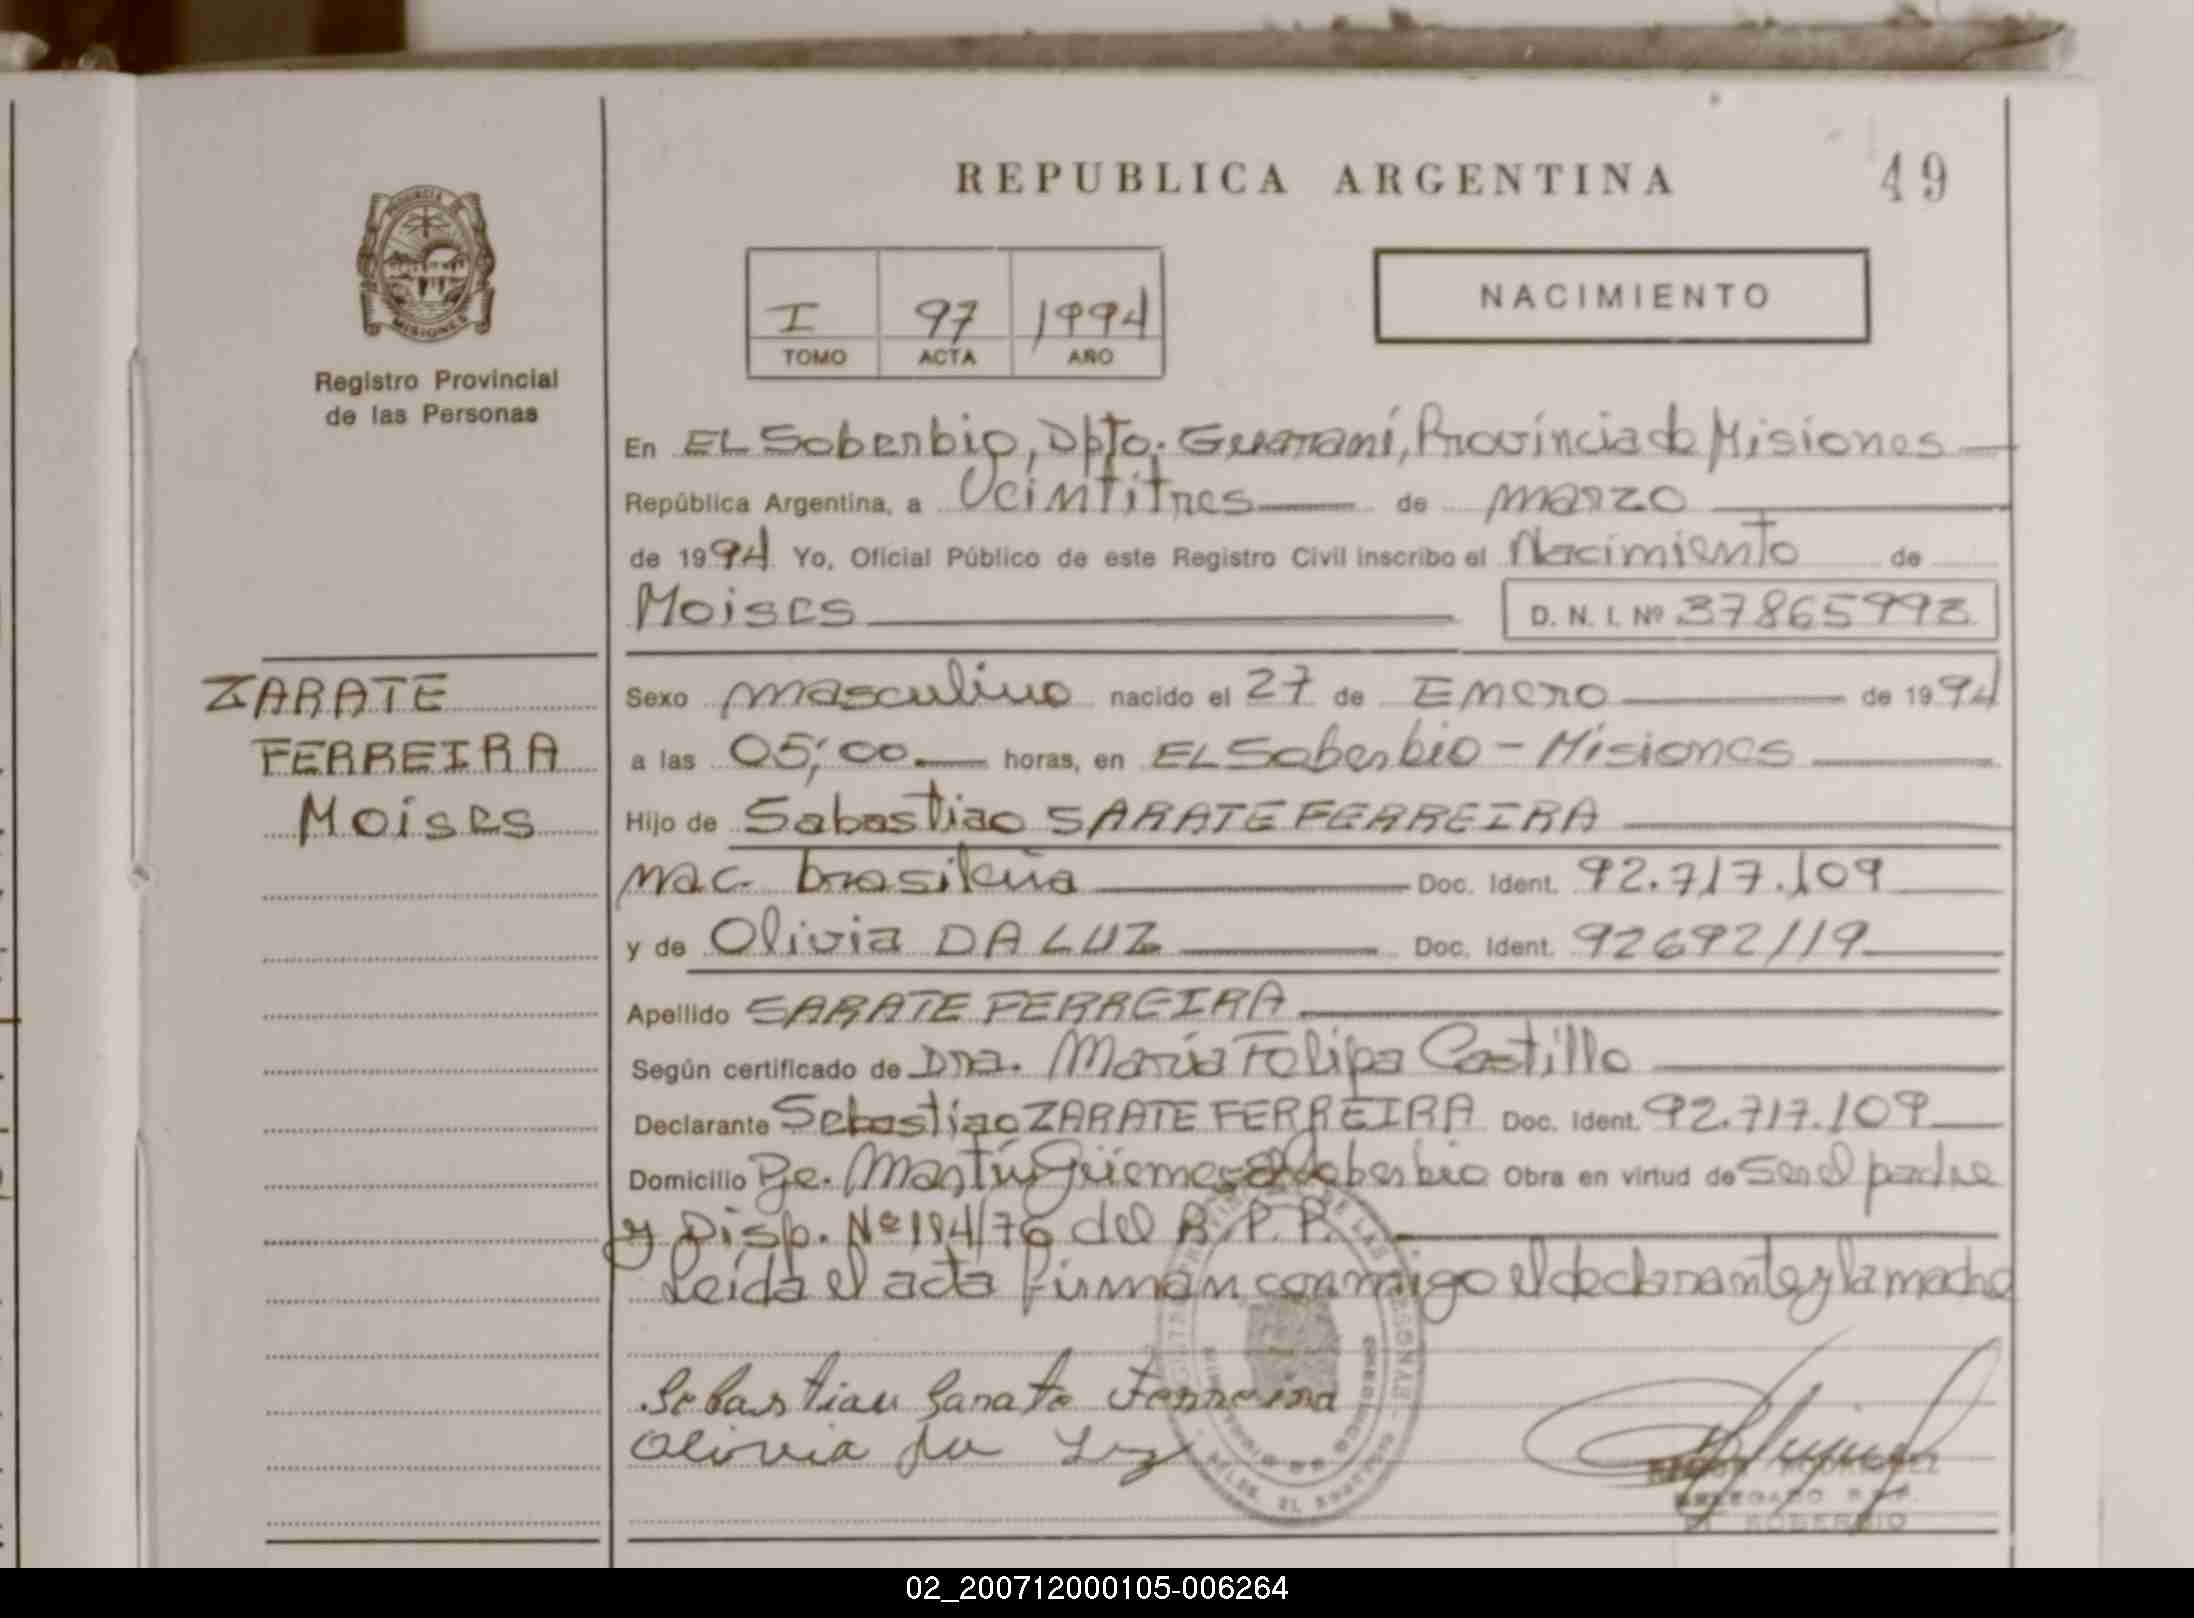 REPUBLICA ARGENTINA
49
PROVINCIA DE
MISIONES
Registro Provincial
de las Personas
I 97 1994
TOMO ACTA AÑO
NACIMIENTO
En EL Soberbio, Dpto. Guaraní, Provincia de Misiones
República Argentina, a Veintitres de marzo
de 1994 Yo, Oficial Público de este Registro Civil inscribo el Nacimiento de
Moises D. N. I. Nº 37865993
ZARATE
FERREIRA
Moises
Sexo masculino nacido el 27 de Enero de 1994
a las 05;00 horas, en EL Soberbio - Misiones
Hijo de Sabastiao SARATE FERREIRA
nac. brasileña Doc. Ident. 92.717.109
y de Olivia DA LUZ Doc. Ident. 92692119
Apellido SARATE FERREIRA
Según certificado de Dra. María Felipa Castillo
Declarante Sebastiao ZARATE FERREIRA Doc. Ident. 92.717.109
Domicilio Pje. Martín Güemes El Soberbio Obra en virtud de ser el padre
y Disp. Nº 194/76 del R.P.P.
Leída el acta firman conmigo el declarante y la madre
Sebastiau Sarate Ferreira
Olivia da Luz
RODRIGUEZ
DELEGADO R.P.P.
EL SOBERBIO
02_200712000105-006264